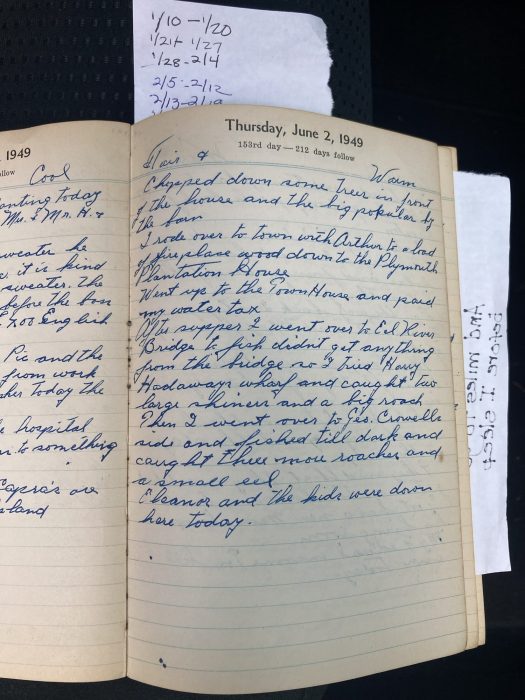 1/10 - 1/20
1/21 - 1/27
1/28 - 2/4
2/5 - 2/12
2/13 - 2/19
, 1949
follow
Cool
anting today
Mrs. & Mr. H. &
sweater he
it is kind
sweater. the
before the bon
£7.00 English
Pic and the
from work
today the
hospital
to something
Capra's are
land
Thursday, June 2, 1949
153rd day — 212 days follow
Fair & Warm
Chopped down some trees in front
of the house and the big popular by
the barn
I rode over to town with Arthur to a load
of fireplace wood down to the Plymouth
Plantation House
Went up to the Town House and paid
my water tax.
After supper I went over to Eel River
Bridge to fish didn't get anything
from the bridge so I tried Harry
Hadaways wharf and caught two
large shiners and a big roach
Then I went over to Geo. Crowells
side and fished till dark and
caught three more roaches and
a small eel
Eleanor and the kids were down
here today.
And miles to go
before I sleep